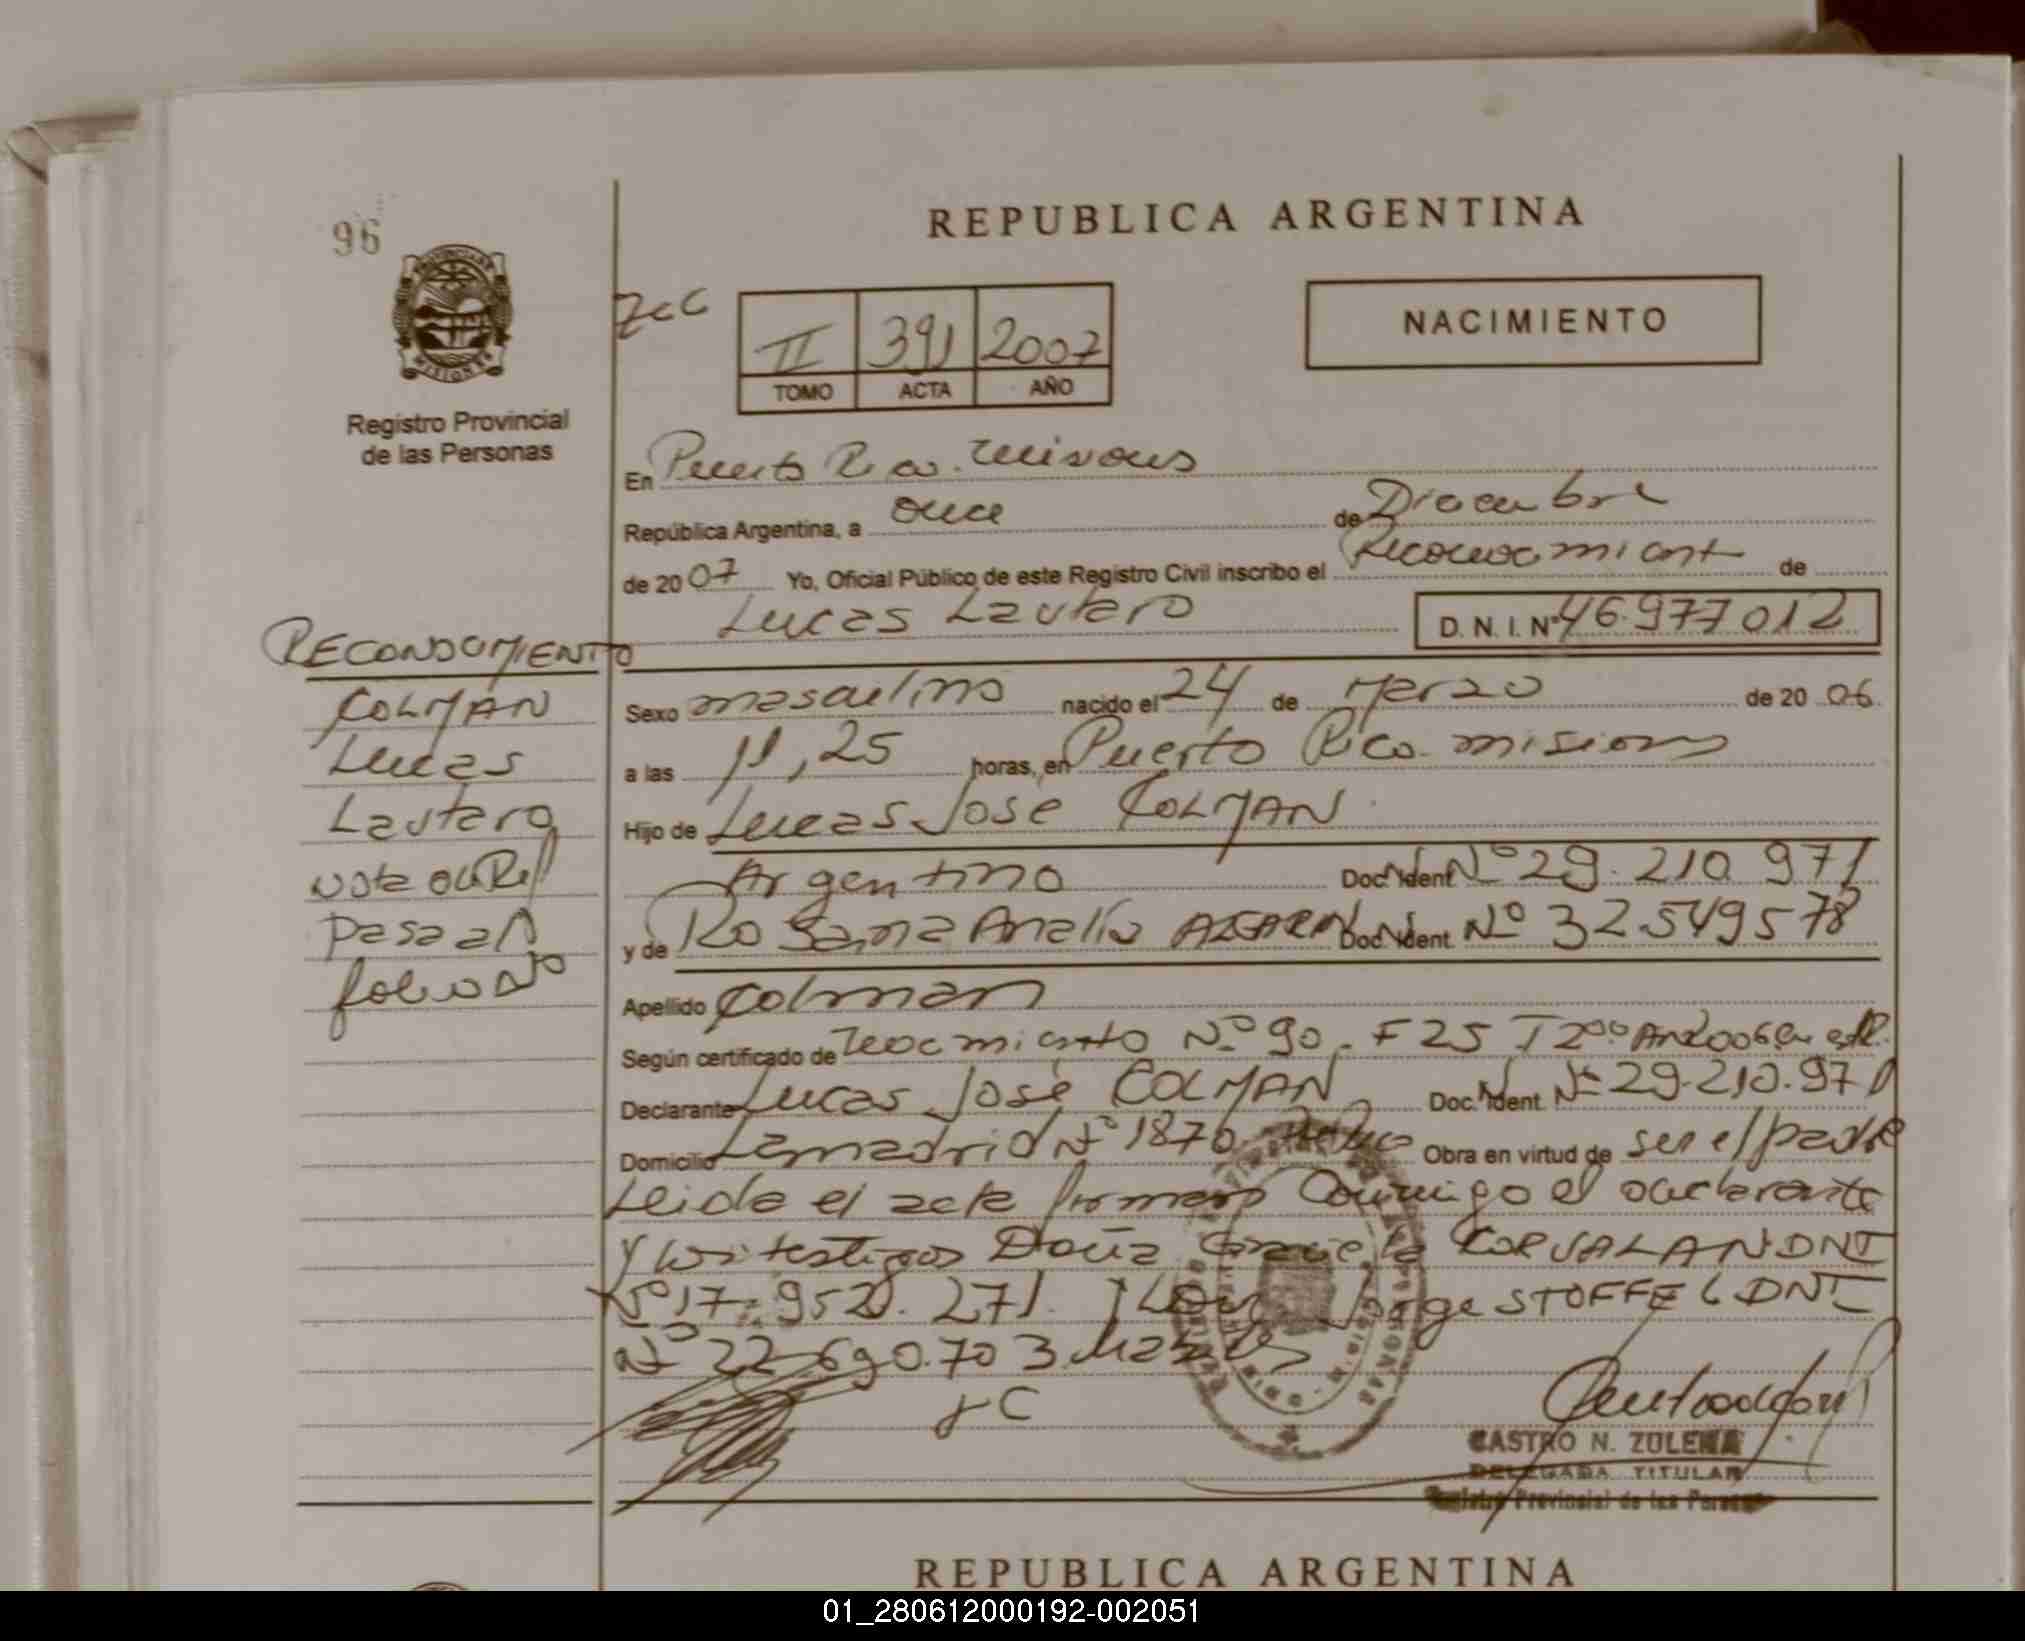 96
REPUBLICA ARGENTINA
MISIONES
Registro Provincial
de las Personas
II 391 2007
TOMO ACTA AÑO
NACIMIENTO
En Puerto Rico. Misiones
República Argentina, a once de Diciembre
de 2007 Yo, Oficial Público de este Registro Civil inscribo el Reconocimient de
Lucas Lautaro D. N. I. Nº 46.977012
Sexo masculino nacido el 24 de Marzo de 2006.
a las 11,25 horas, en Puerto Rico. misiones
Hijo de Lucas José COLMAN.
Argentino Doc. Ident Nº 29.210.971
y de Rosana Analía Doc. Ident Nº 32.549578
Apellido Colman
Según certificado de Nº 90. F 25 T 2º
Declarante Lucas José COLMAN Doc. Ident. Nº 29.210.971
Domicilio Lamadrid Nº 1870 Obra en virtud de ser el padre
Leida el acta firman Conmigo el declarante
y los testigos Doña Graciela CORVALAN DNI
Nº 17.952.271. Jorge STOFFEL DNI
Nº 22.690.703
CASTRO N. ZULEMA
DELEGADA TITULAR
Registro Provincial de las Personas
RECONOCIMIENTO
COLMAN
Lucas
Lautaro
nota de Ref
pasa al
folio Nº
REPUBLICA ARGENTINA
01_280612000192-002051